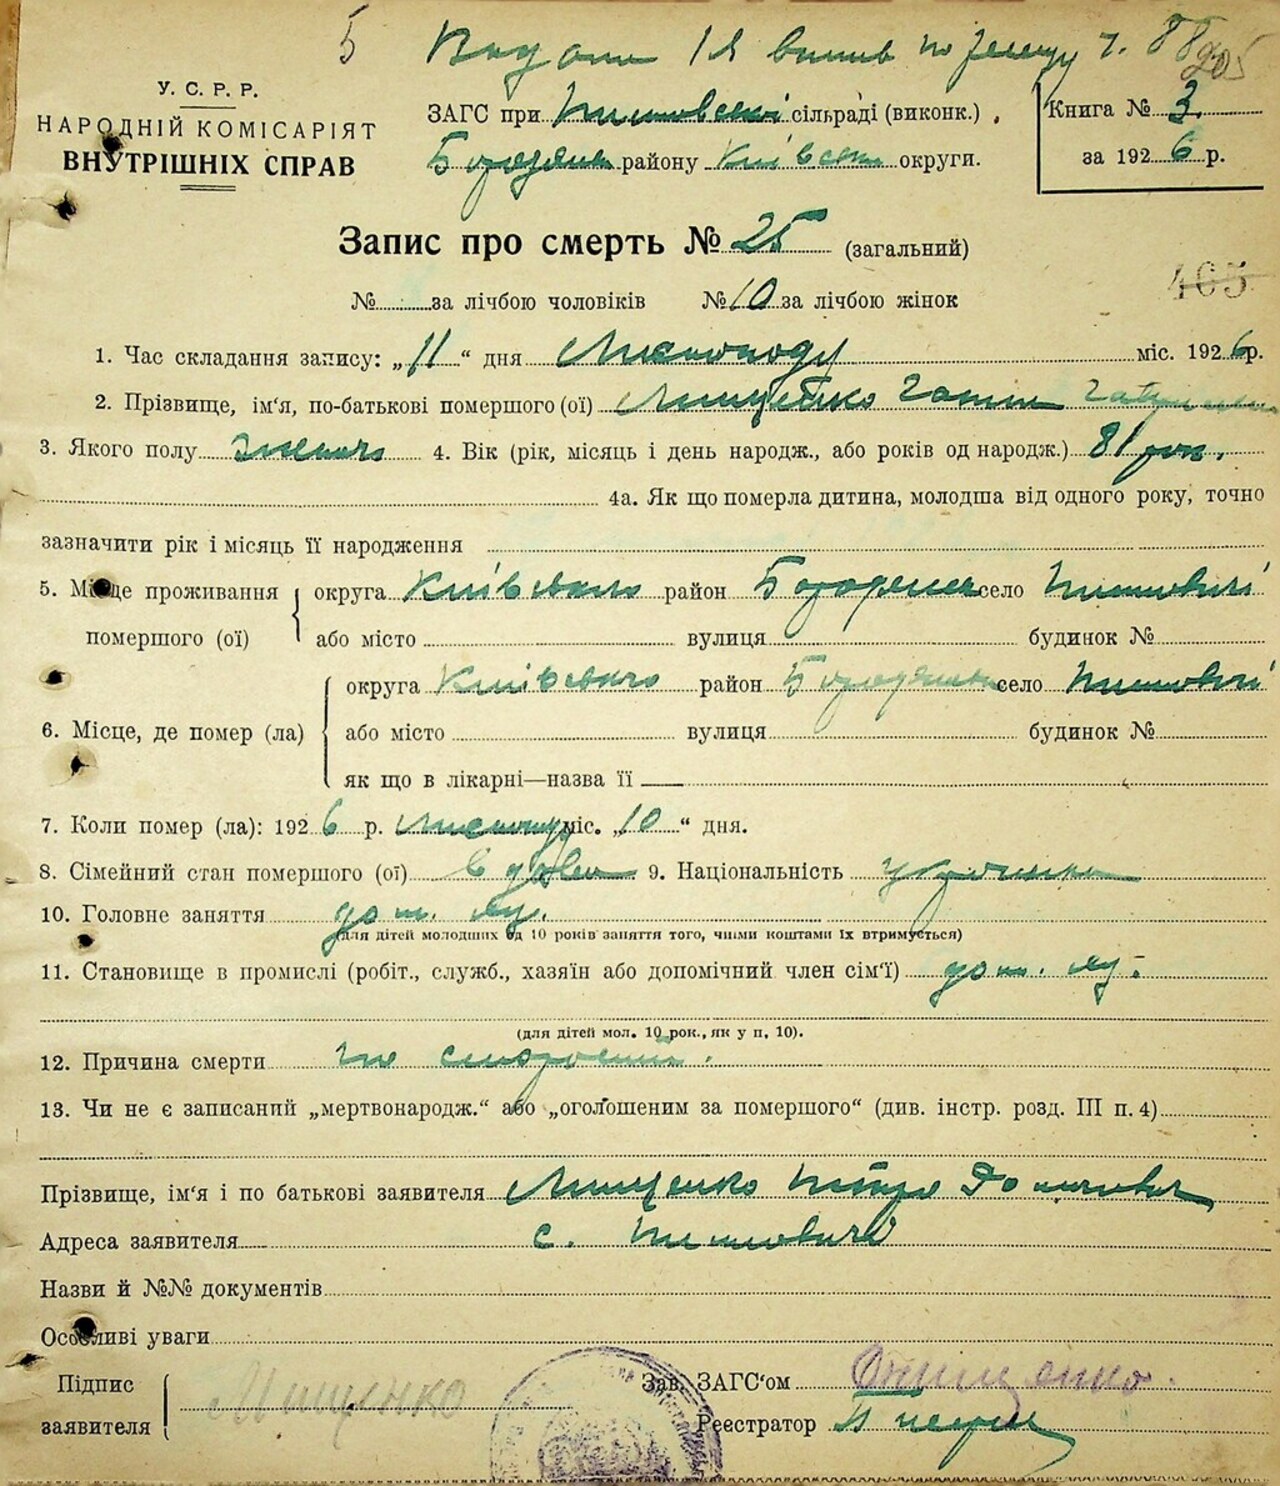 5
У. С. Р. Р.
НАРОДНІЙ КОМІСАРІЯТ
ВНУТРІШНІХ СПРАВ
ЗАГС при сільраді (виконк.)
району Київськ округи.
Книга № 3.
за 1926 р.
Запис про смерть № 25 (загальний)
№ за лічбою чоловіків № 10 за лічбою жінок
405
1. Час складання запису: „11“ дня Листопаду міс. 1926р.
2. Прізвище, ім'я, по-батькові помершого (ої) Мищенко
3. Якого полу жіночо 4. Вік (рік, місяць і день народж., або років од народж.) 81 рок.
4а. Як що померла дитина, молодша від одного року, точно
зазначити рік і місяць її народження
5. Місце проживання округа Київсько район село
помершого (ої) або місто вулиця будинок №
округа Київсько район село
6. Місце, де помер (ла) або місто вулиця будинок №
як що в лікарні—назва її
7. Коли помер (ла): 1926 р. Листопад міс. „10“ дня.
8. Сімейний стан помершого (ої) вдова 9. Національність українка
10. Головне заняття
(для дітей молодших од 10 років заняття того, чиїми коштами їх втримується)
11. Становище в промислі (робіт., служб., хазяїн або допомічний член сім'ї)
(для дітей мол. 10 рок., як у п. 10).
12. Причина смерти
13. Чи не є записаний „мертвонародж.“ або „оголошеним за помершого“ (див. інстр. розд. III п. 4)
Прізвище, ім'я і по батькові заявителя Мищенко Петро
Адреса заявителя с.
Назви й №№ документів
Особливі уваги
Підпис
заявителя Мищенко
Зав. ЗАГС'ом
Реєстратор